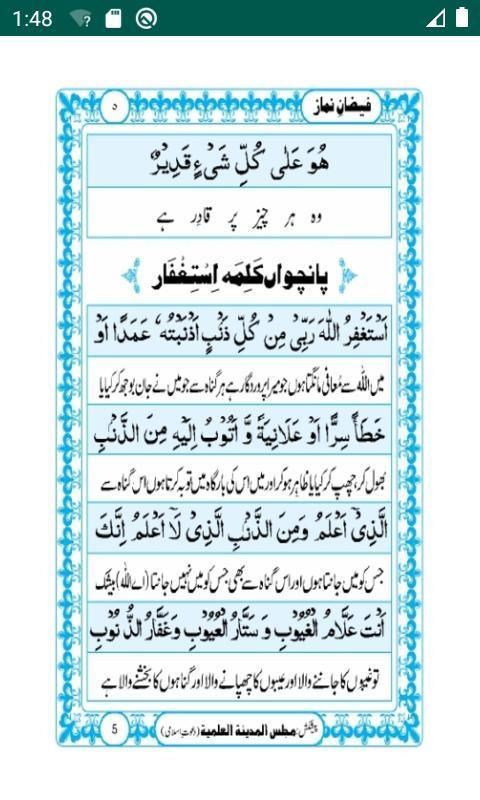 1:48
فیضانِ نماز
۵
ھُوَ عَلٰی کُلِّ شَیْءٍ قَدِیْرٌ
وہ ہر چیز پر قادِر ہے
پانچواں کَلِمَہ اِسْتِغْفَار
اَسْتَغْفِرُ اللہَ رَبِّیْ مِنْ کُلِّ ذَنْۢبٍ اَذْنَبْتُہٗ عَمَدًا اَوْ
میں اللہ سے مُعافی مانگتا ہوں جو میرا پروردگار ہے ہر گناہ سے جو میں نے جان بوجھ کر کیا یا
خَطَأً سِرًّا اَوْ عَلَانِیَۃً وَّ اَتُوْبُ اِلَیْہِ مِنَ الذَّنْۢبِ
بھول کر، چھپ کر کیا یا ظاہر ہو کر اور میں اس کی بارگاہ میں توبہ کرتا ہوں اس گناہ سے
الَّذِیْۤ اَعْلَمُ وَمِنَ الذَّنْۢبِ الَّذِیْ لَاۤ اَعْلَمُ اِنَّکَ
جس کو میں جانتا ہوں اور اس گناہ سے بھی جس کو میں نہیں جانتا (اے اللہ) بیشک
اَنْتَ عَلَّامُ الْغُیُوْبِ وَ سَتَّارُ الْعُیُوْبِ وَغَفَّارُ الذُّنُوْبِ
تو غیبوں کا جاننے والا اور عیبوں کا چھپانے والا اور گناہوں کا بخشنے والا ہے
پیشکش: مجلس المدینۃ العلمیۃ (دعوتِ اسلامی)
5